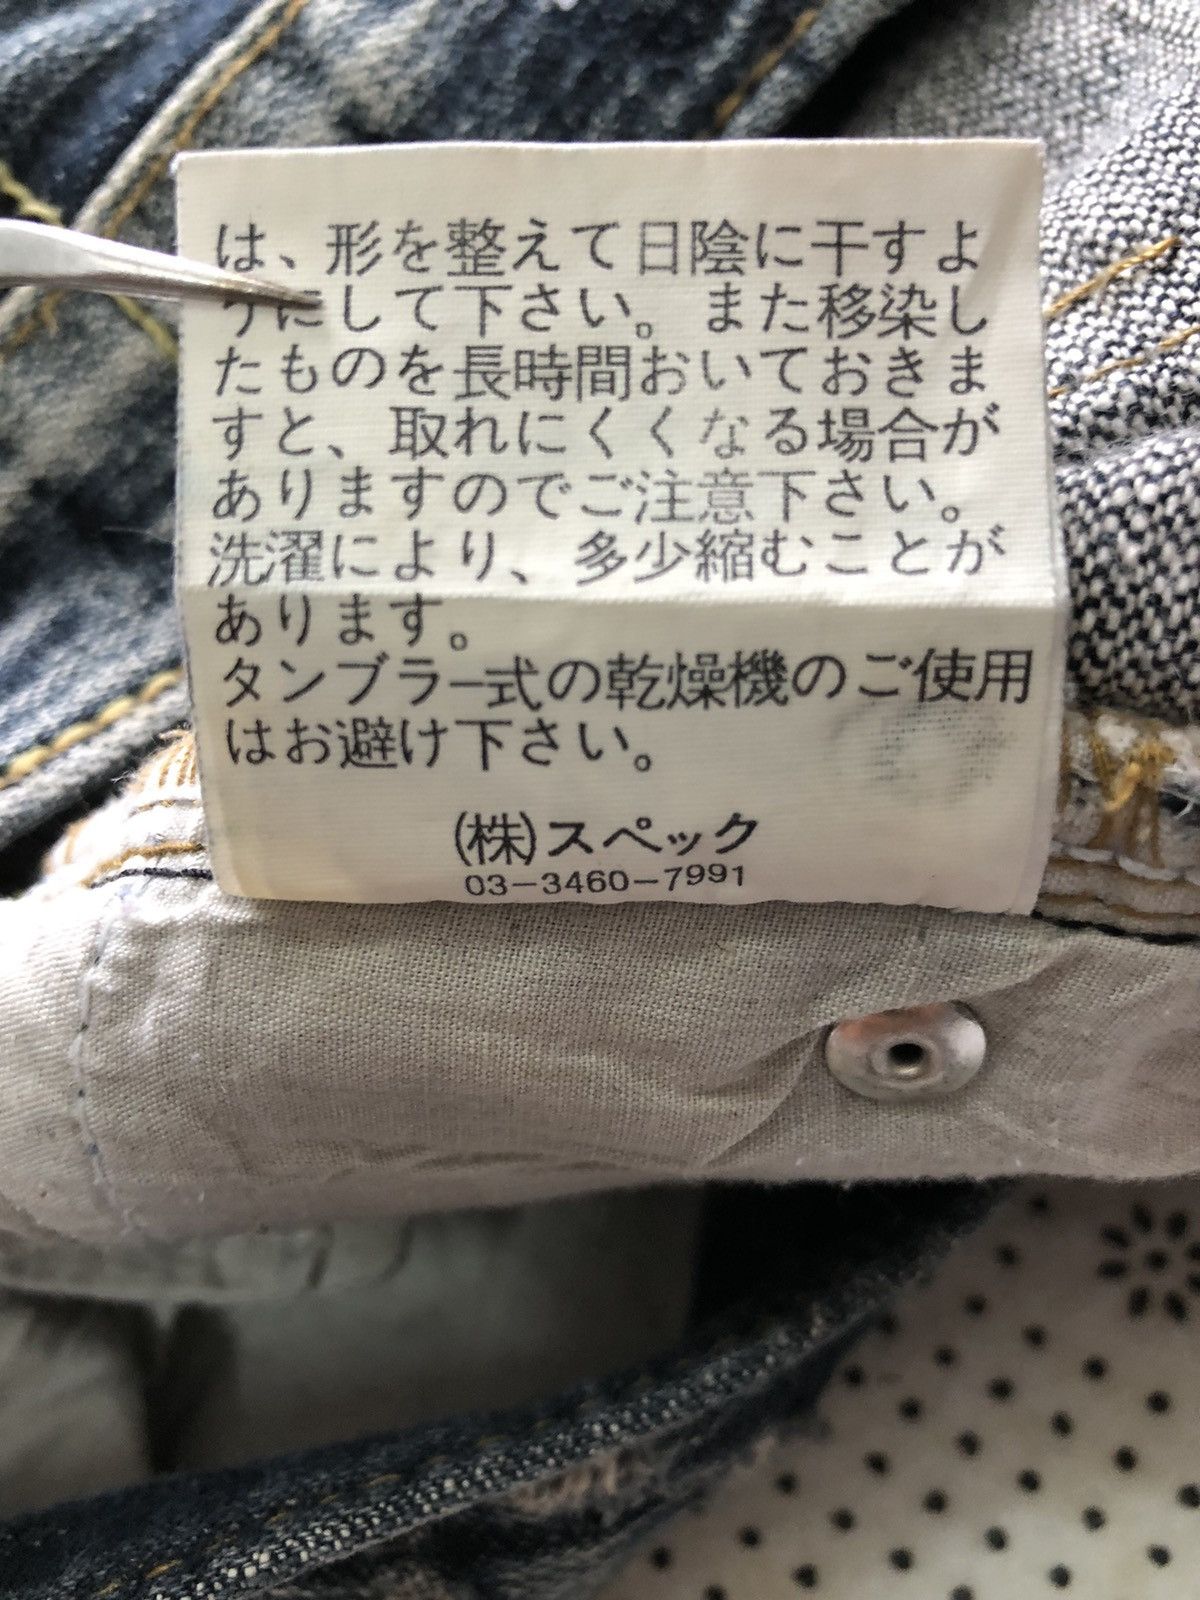 は、形を整えて日陰に干すよ
うにして下さい。また移染し
たものを長時間おいておきま
すと、取れにくくなる場合が
ありますのでご注意下さい。
洗濯により、多少縮むことが
あります。
タンブラー式の乾燥機のご使用
はお避け下さい。
(株)スペック
03-3460-7991